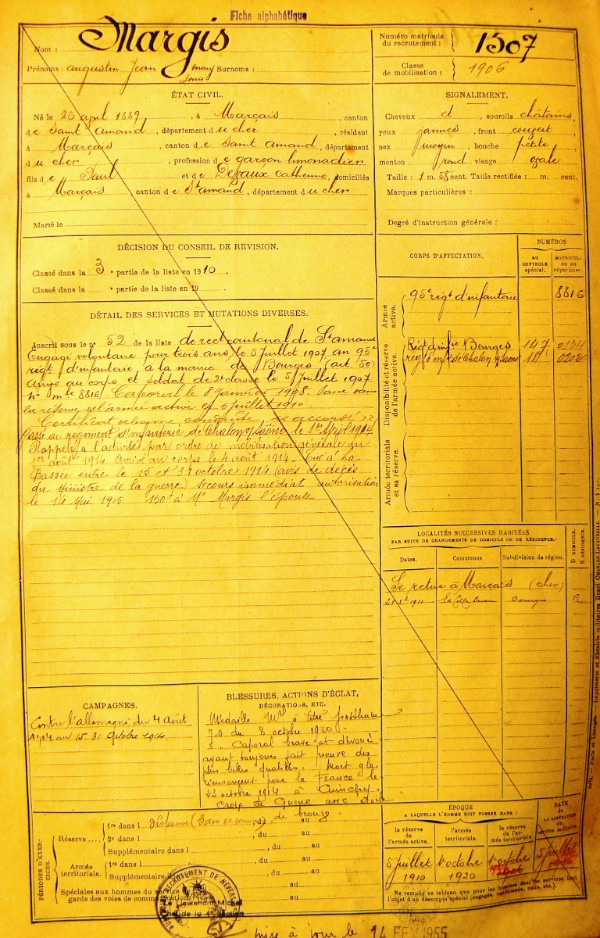 Fiche alphabétique
Nom : Margis
Prénoms : Augustin Jean Surnoms :
Numéro matricule du recrutement : 1307
Classe de mobilisation : 1906
ÉTAT CIVIL.
Né le 26 april 1889, à Marçais, canton
de Saint Amand, département du cher, résidant
à Marçais, canton de Saint Amand, département
du cher, profession de garçon limonadier
fils de Paul et de Defaux Catherine, domiciliés
à Marçais canton de St amand, département du cher
Marié le
SIGNALEMENT.
Cheveux et sourcils chatains
yeux jaunes, front
nez moyen, bouche petite
menton rond visage ovale
Taille : 1 m. 58 cent. Taille rectifiée : m. cent.
Marques particulières :
Degré d'instruction générale :
DÉCISION DU CONSEIL DE REVISION.
Classé dans la 3e partie de la liste en 1910
Classé dans la e partie de la liste en 19
DÉTAIL DES SERVICES ET MUTATIONS DIVERSES.
Inscrit sous le no 52 de la liste de rect cantonal de St amand
Engagé volontaire pour trois ans le 5 juillet 1907 au 95e
régt d'infanterie, à la mairie de Bourges (art. 50)
Arrivé au corps et soldat de 2e classe le 5 juillet 1907
No mle 8816 Caporal le 8 janvier 1908. Passé dans
la réserve de l'armée active le 5 juillet 1910
Certificat de bonne conduite accordé
Passé au régiment d'Infanterie de Chalon s/Saone le 1er avril 1914
Rappelé à l'activité par ordre de mobilisation générale du
1er août 1914 Arrivé au corps le 4 août 1914. Tué à La
Bassée entre le 15 et 31 octobre 1914 (avis de décès
du Ministre de la guerre) Secours immédiat autorisation
le 14 Mai 1915 150f à Me Margis l'épouse
CORPS D'AFFECTATION.
NUMÉROS
AU CONTROLE spécial.
MATRICULE OU AU répertoire
Armée active.
95e régt d'infanterie 8816
Disponibilité et réserve de l'armée active.
Régt d'infie Bourges 147 0134
régt d'infie de Chalon s/Saone
Armée territoriale et sa réserve.
LOCALITÉS SUCCESSIVES HABITÉES
PAR SUITE DE CHANGEMENTS DE DOMICILE OU DE RÉSIDENCE.
Dates. Communes. Subdivision de région. D. DOMICILE. R. RÉSIDENCE.
Se retire à Marçais (cher)
Bourges R
CAMPAGNES.
Contre l'allemagne du 4 Août
1914 au 15.31 Octobre 1914
BLESSURES, ACTIONS D'ÉCLAT,
DÉCORATIONS, ETC.
Médaille Mre à titre posthume
J.O. du 8 octobre 1920
" Caporal brave et dévoué
ayant toujours fait preuve des
plus belles qualités. Mort glo
rieusement pour la France le
23 octobre 1914 à Cuinchy.
Croix de Guerre avec étoile
de bronze
PÉRIODES D'EXERCICES.
Réserve
1re dans l Dispensé du au
2e dans l du au
Supplémentaire dans l du au
Armée territoriale.
1re dans l du au
Supplémentaire dans l du au
Spéciales aux hommes du service de
garde des voies de communication
ÉPOQUE
A LAQUELLE L'HOMME DOIT PASSER DANS :
la réserve de l'armée active.
l'armée territoriale.
la réserve de l'armée territoriale.
DATE DE LA LIBÉRATION du service militaire
5 juillet 1910
1er octobre 1920
mise à jour le 14 FEV 1955